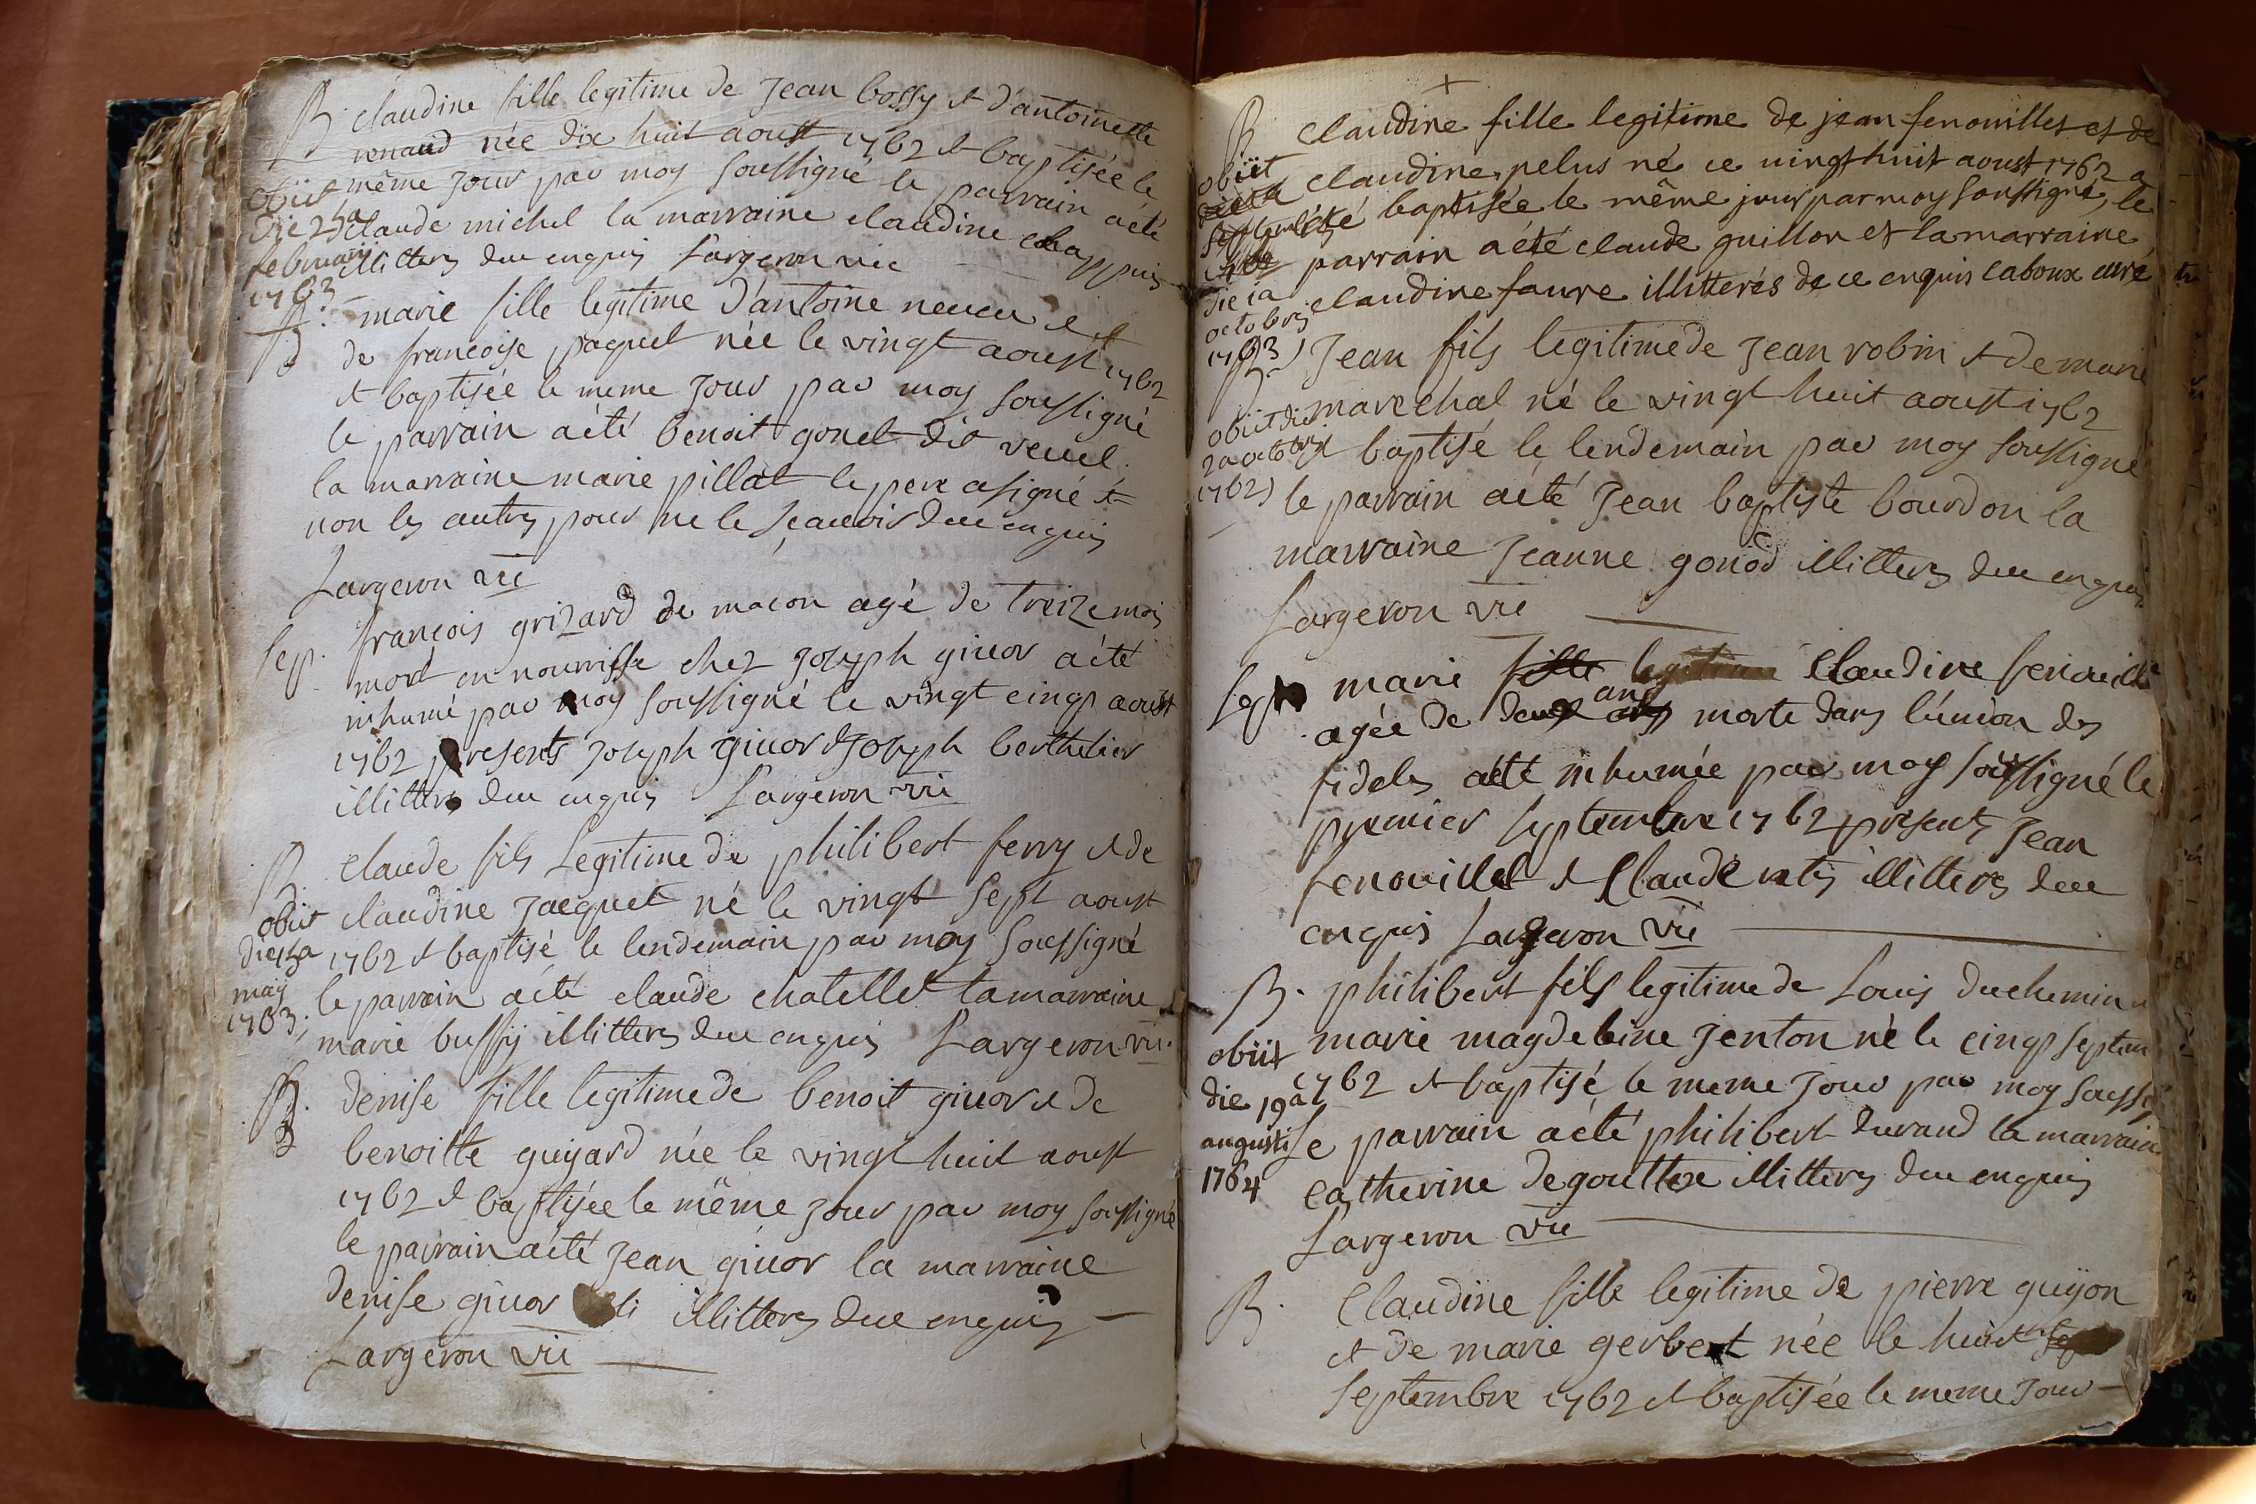 B. claudine fille legitime de Jean bossy et d'antoinette
renaud née dix huit aoust 1762 et baptisée le
même jour par moy soussigné le parrain a été
claude michel la marraine claudine chappuis
illitters due enquis Largeron vic
obiit
die 25a
februarii
1763
B. marie fille legitime d'antoine neveu et
de francoise paquet née le vingt aoust 1762
et baptisée le meme jour par moy soussigné
le parrain a été benoit gonet dit veuel
la marraine marie pillat le pere a signé et
non les autres pour ne le sçauoir due enquis
Largeron vic
Sep. françois grizard de macon agé de treize mois
mort en nourrisse chez joseph giuor a été
inhumé par moy soussigné le vingt cinq aoust
1762 presents joseph giuor et joseph berthelier
illitters due enquis Largeron vic
B. claude fils Legitime de philibert ferry et de
claudine jacquet né le vingt sept aoust
1762 et baptisé le lendemain par moy soussigné
le parrain a été claude chatellet la marraine
marie bussy illitters due enquis Largeron vic.
obiit
die 13a
may
1763
B. denise fille legitime de benoit giuor et de
benoitte guyard née le vingt huit aoust
1762 et baptisée le même jour par moy soussigné
le parrain a été jean giuor la marraine
denise giuor illitters due enquis
Largeron vic
B. claudine fille legitime de jean fenouillet et de
claudine pelus né ce uingt huit aoust 1762 a
été baptisée le même jour par moy soussigné, le
parrain a été claude guillon et la marraine
claudine faure illitterés de ce enquis caboux curé
obiit
die 1a
octobris
1763
B. Jean fils legitime de jean robin et de marie
marechal né le vingt huit aoust 1762
et baptisé le lendemain par moy soussigné
le parrain a été Jean baptiste bourdon la
marraine jeanne gonod illitters due enquis
Largeron vic
obiit die
2a octobris
1762
Sep. marie fille legitime Claudine fenouillet
agée de deux ans morte dans l'union des
fideles a été inhumée par moy soussigné le
premier septembre 1762 presents jean
fenouillet et Claude illitters due
enquis Largeron vic
B. philibert fils legitime de Louis duchemin
marie magdeleine jenton né le cinq septem
1762 et baptisé le meme jour par moy soussi
Le parrain a été philibert durand la marraine
catherine degouttes illitters due enquis
Largeron vic
obiit
die 19a
augusti
1764
B. Claudine fille legitime de pierre guyon
et de marie gerbert née le huit
septembre 1762 et baptisée le meme jour